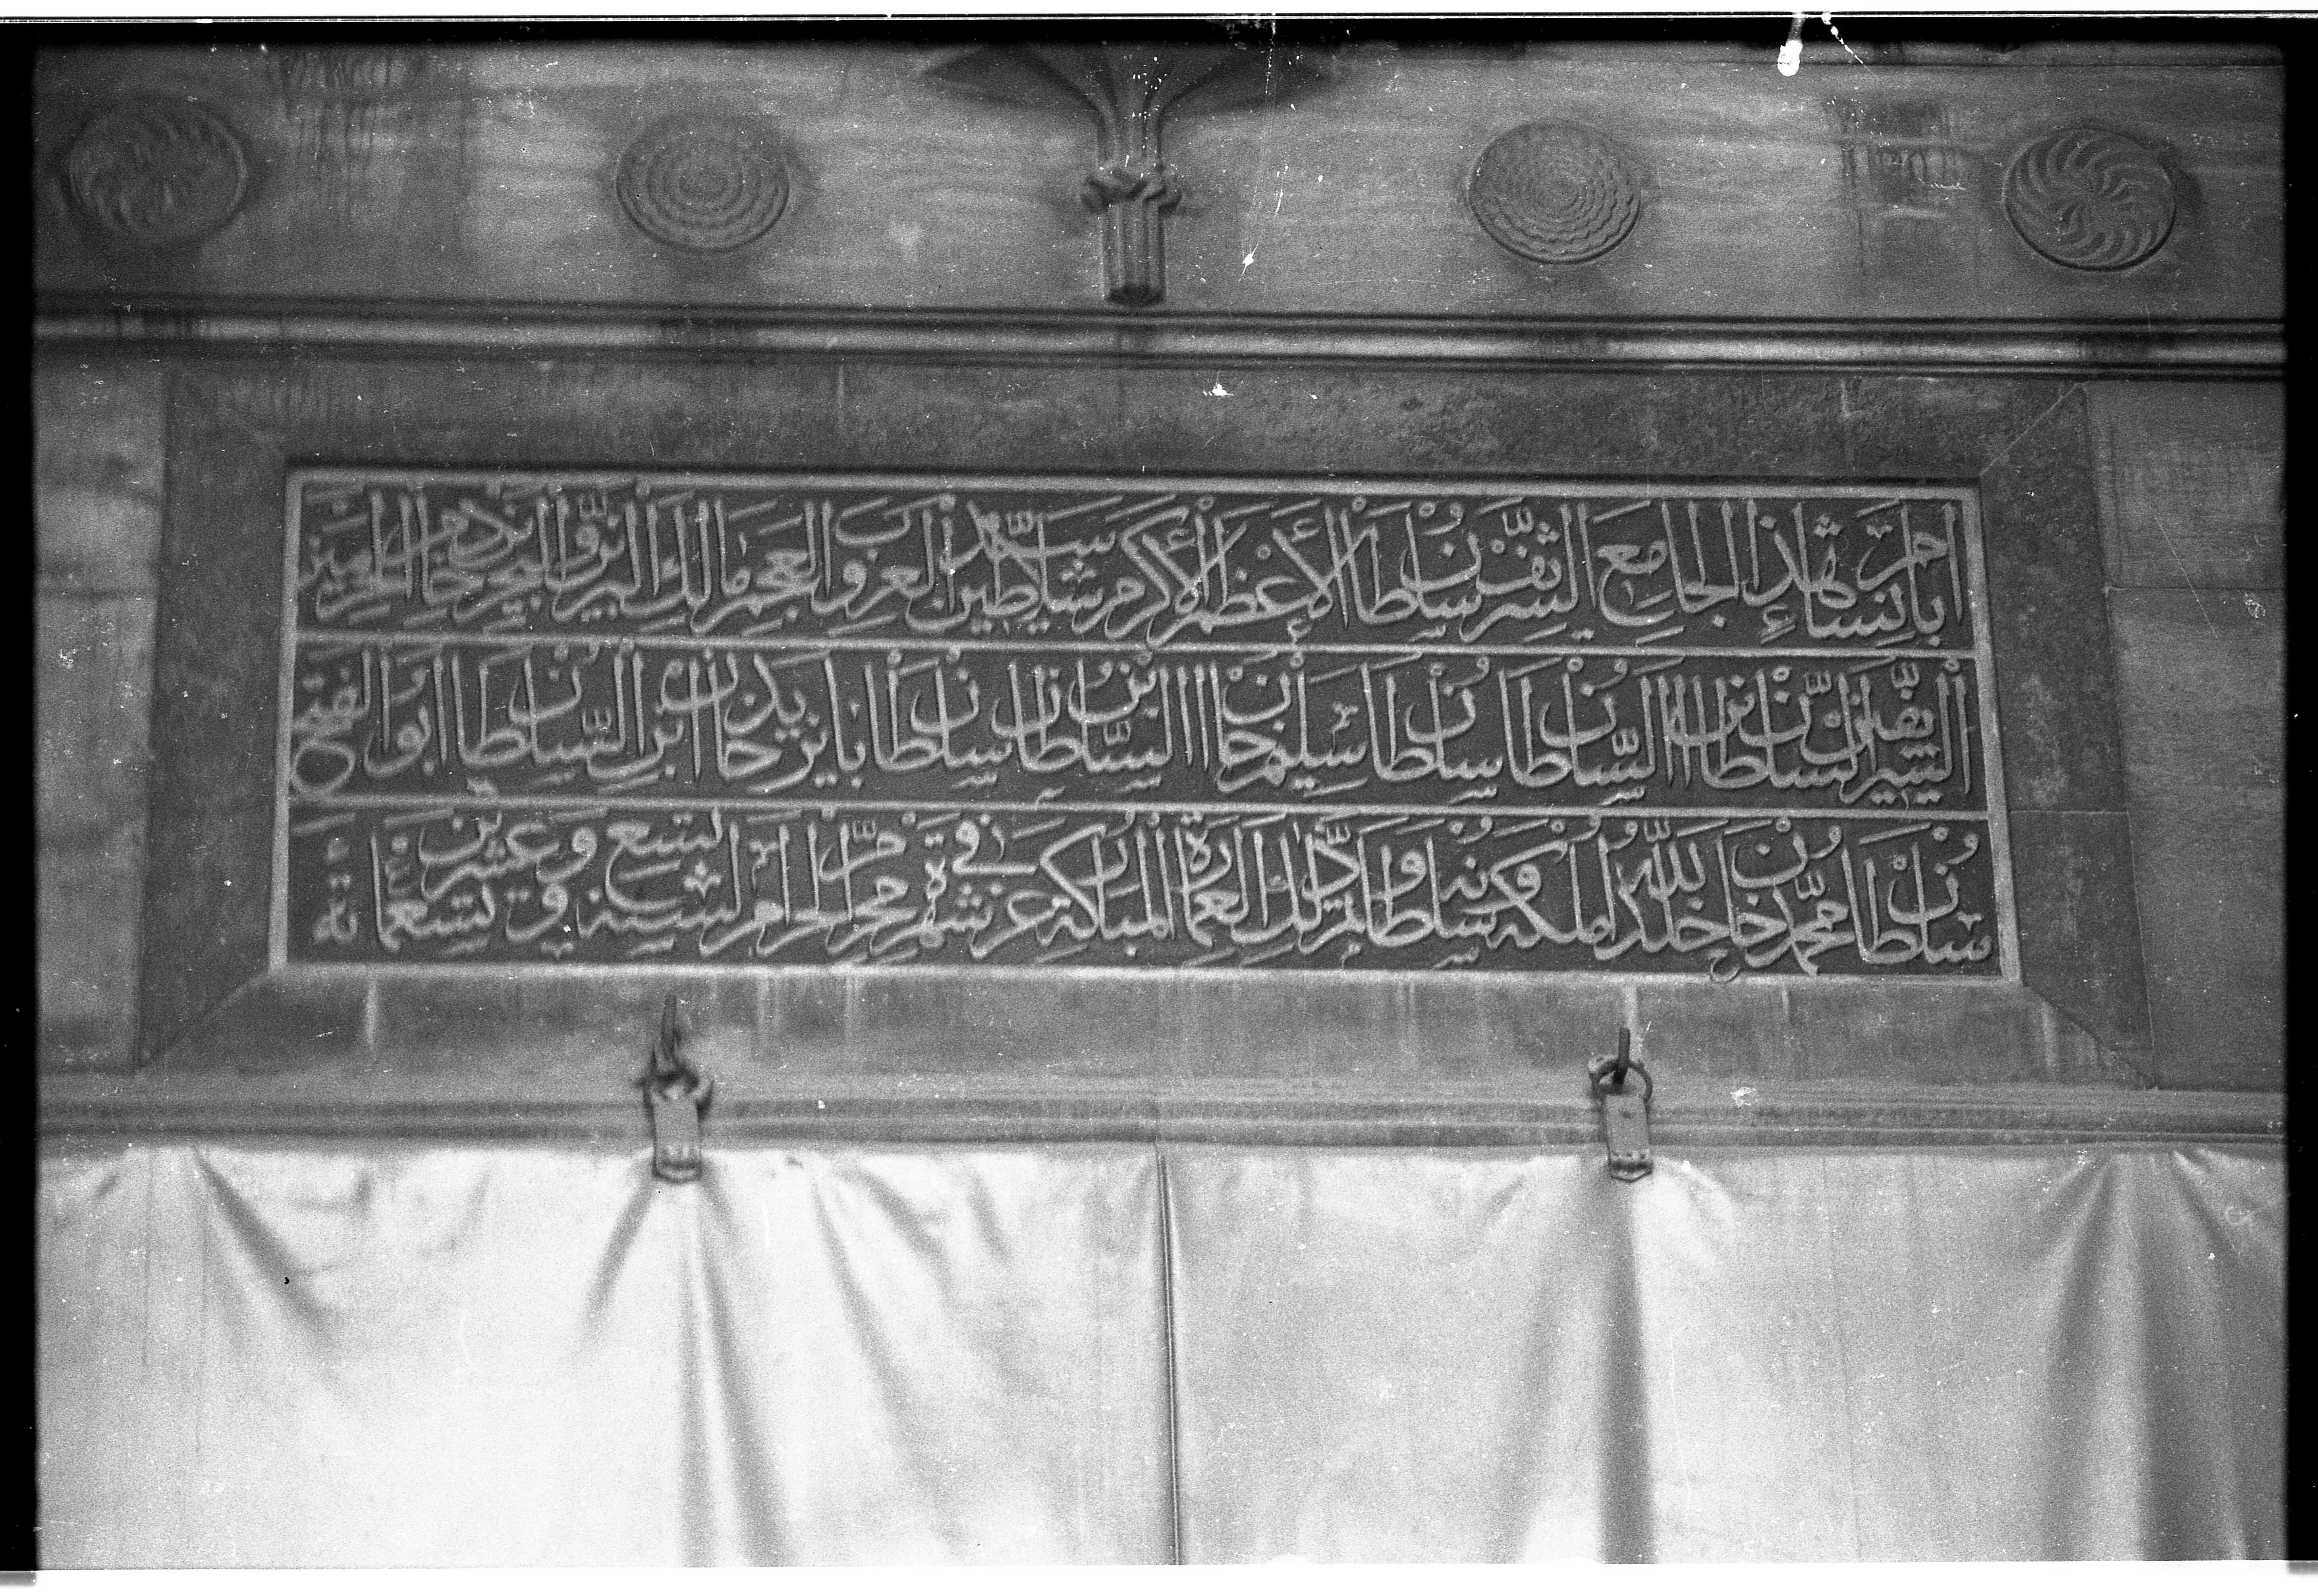 امر بإنشاء هذا الجامع الشريف سلطان الأعظم الأكرم سيد سلاطين العرب و العجم مالك البرين و البحرين خادم الحرمين
الشريفين السلطان ابن السلطان السلطان سلطان سليم خان ابن السلطان سلطان بايزيد خان ابن السلطان ابو الفتح
سلطان محمد خان خلد الله ملكه و سلطانه و لذلك العمارة المباركة في غرة شهر محرم الحرام لسنة تسع و عشرين و تسعمائة